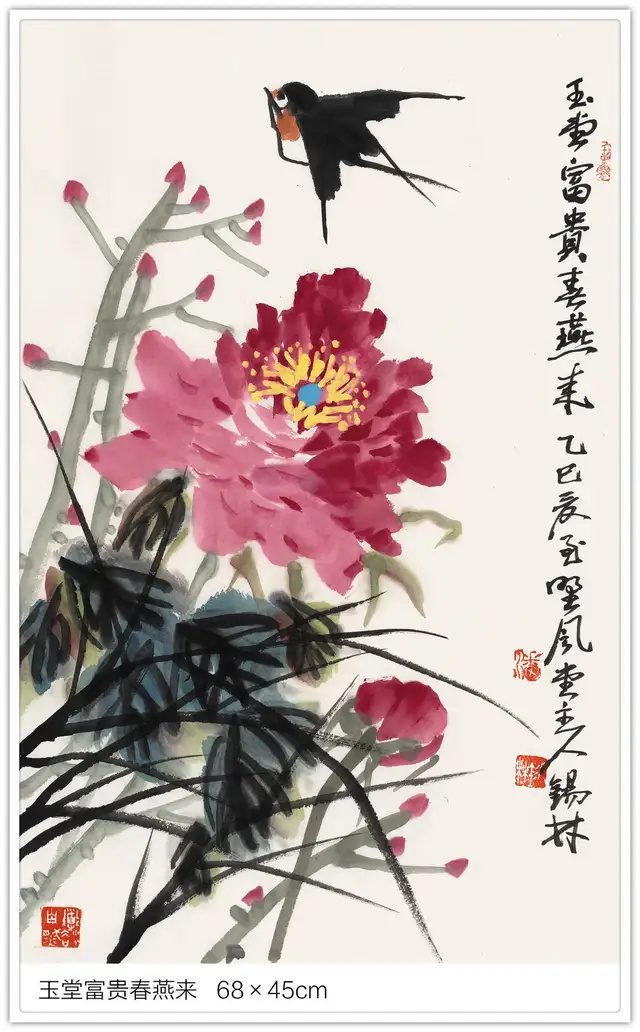 玉堂富貴春燕来 乙巳夏至野风堂主人錫林
潘
玉堂富贵春燕来 68×45cm